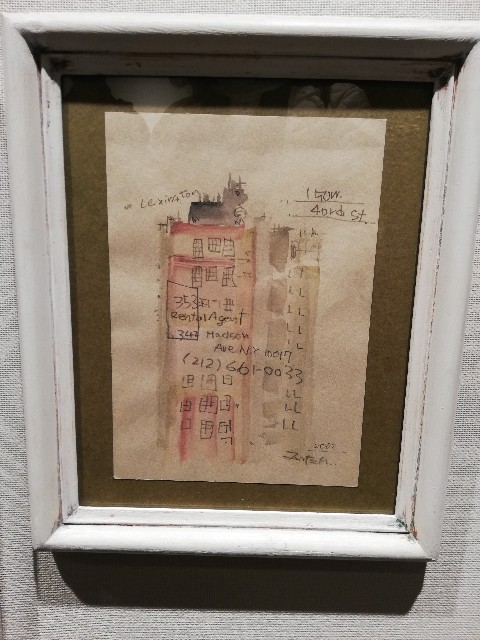 Lexington
150W.
43rd St.
353
Rental Agent
347 Madison
Ave NY 10017
(212) 661-0033